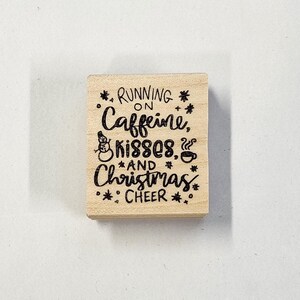 RUNNING
ON
Caffeine,
Kisses,
AND
Christmas
CHEER